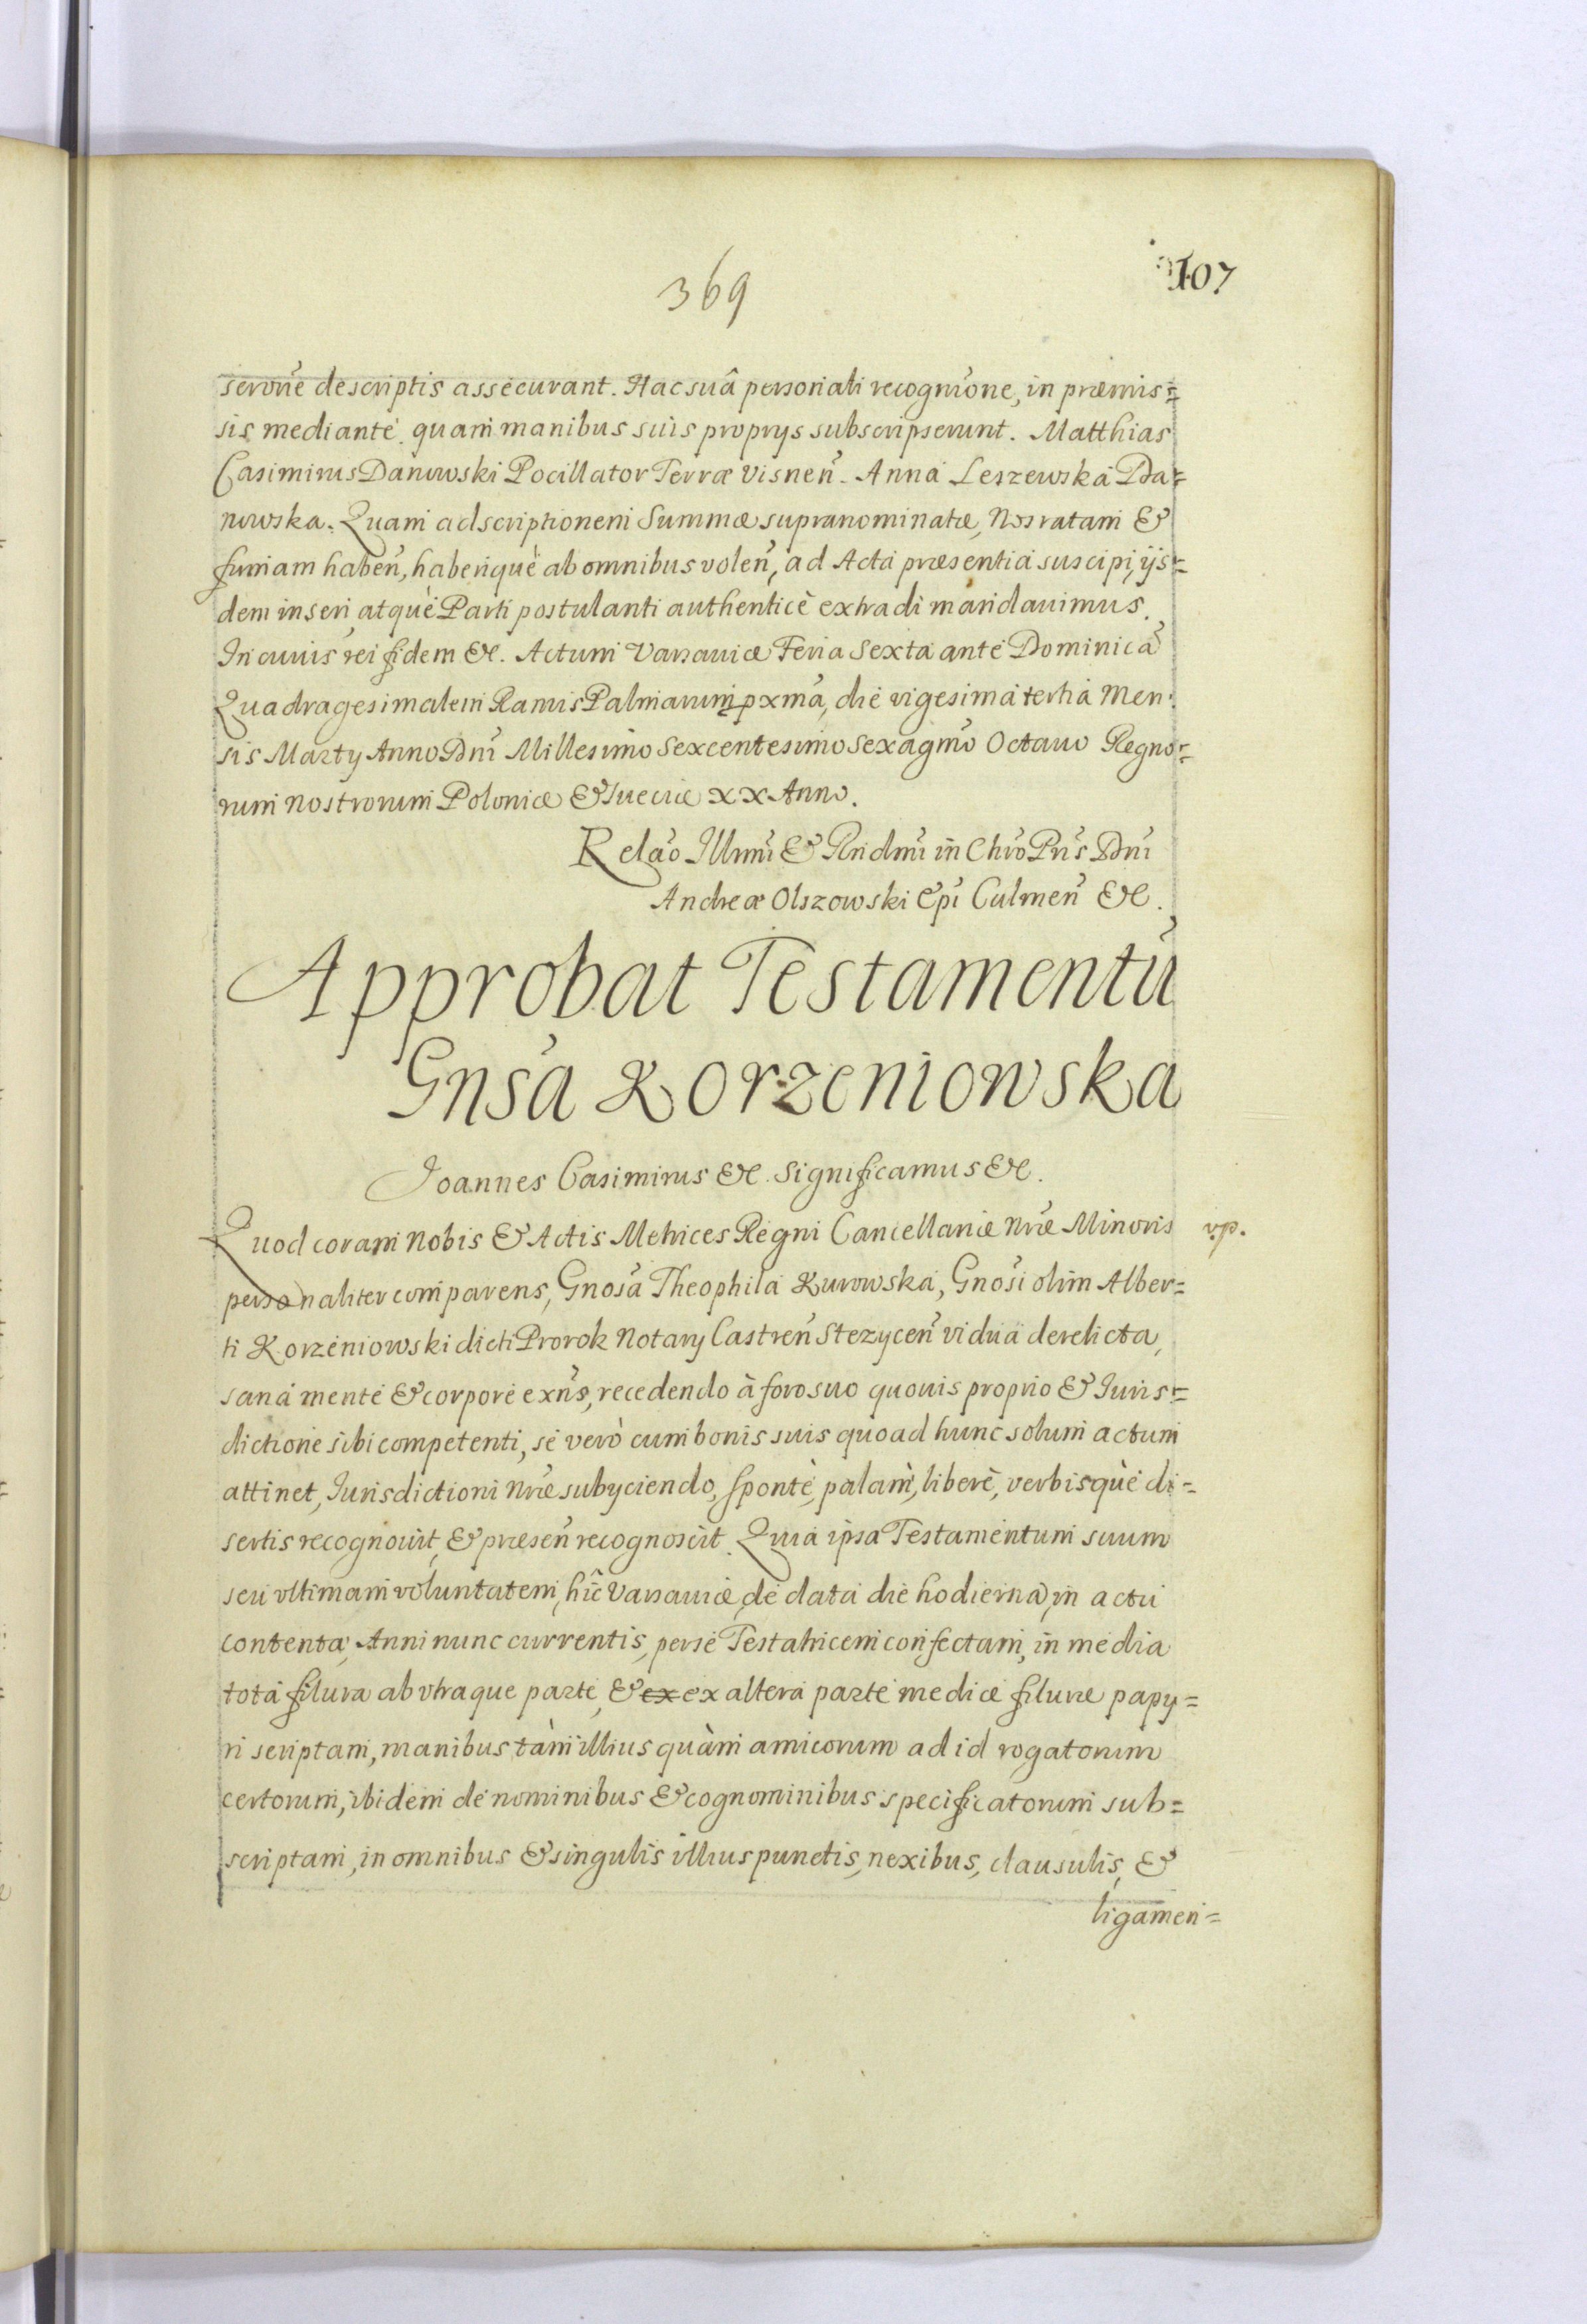 369
107
serone descriptis assecurant. Hac suâ personali recognõne, in præmis=
sis mediante quam manibus suis proprys subscripserunt. Matthias
Casimirus Danowski Pocillator Terræ Visneñ. Anna Leszewska Da=
nowska. Quam adscriptionem Summæ supranominatæ, Nos ratam &
firmam habeñ, haberique ab omnibus voleñ, ad Acta præsentia suscipi, ijs=
dem inseri, atquè Parti postulanti authenticè extradi mandauimus.
In cuius rei fidem &c. Actum Varsauiæ Feria Sexta ante Dominicã
Quadragesimalem Ramis Palmarum pxmã, die vigesima tertia Men:
sis Marty Anno Dni Millesimo Sexcentesimo Sexagmo Octauo Regno=
rum nostrorum Poloniæ & Sueciæ XX Anno.
Relaõ Illmi & Rndmi in Chro Pris Dni
Andreæ Olszowski Epi Culmeñ &c.
Approbat Testamentũ
Gnsa Korzeniowska
Joannes Casimirus &c. Significamus &c.
Quod coram Nobis & Actis Metrices Regni Cancellariæ nræ Minoris
vp.
personaliter comparens, Gnosa Theophila Kurowska, Gnosi olim Alber=
ti Korzeniowski dicti Prorok Notary Castreñ Stezyceñ vidua derelicta,
sana mente & corpore exñs, recedendo à foro suo quouis proprio & Iuris=
dictione sibi competenti, se verò cum bonis suis quoad hunc solum actum
attinet, Iurisdictioni nræ subyciendo, spontè, palàm, liberè, verbisquè di=
sertis recognouit, & præseñ recognoscit. Quia ipsa Testamentum suum
seu vltimam voluntatem, hîc Varsauiæ, de data die hodierna, in actu
contenta, Anni nunc currentis, per se Testatricem confectam, in media
tota filura ab vtraque parte, & ex ex altera parte mediæ filuræ papy=
ri scriptam, manibus tàm illius quàm amicorum ad id rogatorum
certorum, ibidem de nominibus & cognominibus specificatorum sub=
scriptam, in omnibus & singulis illius punctis, nexibus, clausulis, &
ligamen=